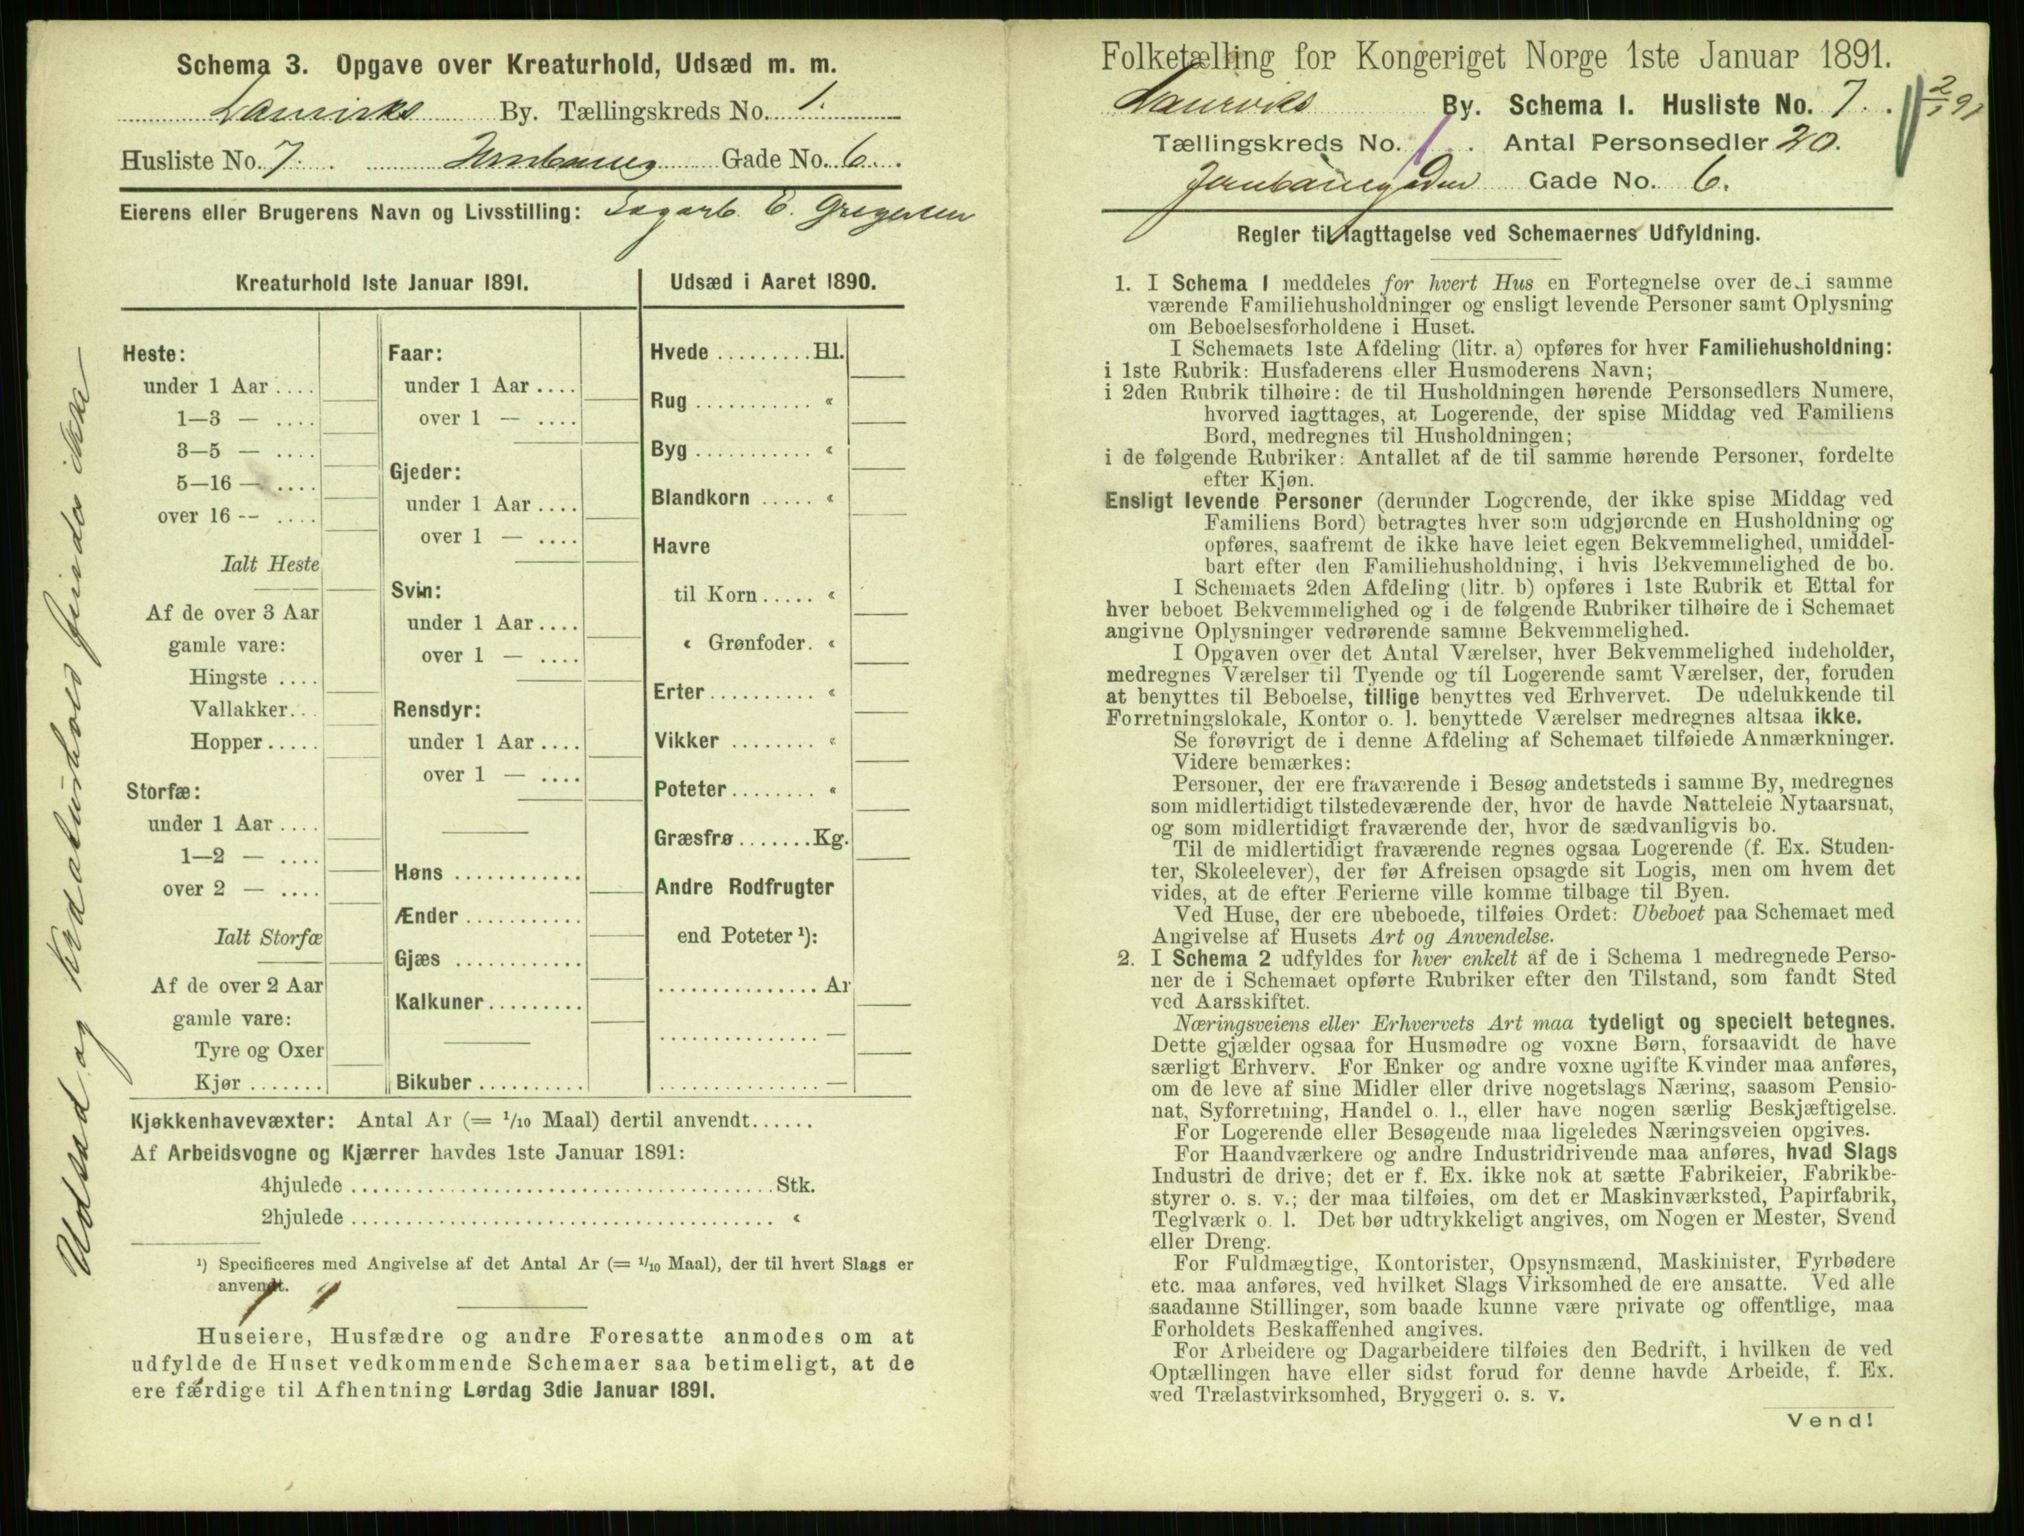 Schema 3. Opgave over Kreaturhold, Udsæd m. m.
Laurviks By. Tællingskreds No. 1.
Husliste No. 7. Jernbaneg Gade No. 6.
Eierens eller Brugerens Navn og Livsstilling: E. Gregersen
Kreaturhold 1ste Januar 1891.
Heste:
under 1 Aar ....
1—3 — ....
3—5 — ....
5—16 — ....
over 16 -- ....
Ialt Heste
Af de over 3 Aar
gamle vare:
Hingste ....
Vallakker...
Hopper.....
Storfæ:
under 1 Aar ....
1—2 — ....
over 2 — ....
Ialt Storfæ
Af de over 2 Aar
gamle vare:
Tyre og Oxer
Kjør .......
Faar:
under 1 Aar ....
over 1 — ....
Gjeder:
under 1 Aar ....
over 1 — ....
Svin:
under 1 Aar ....
over 1 — ....
Rensdyr:
under 1 Aar ....
over 1 — ....
Høns ............
Ænder ...........
Gjæs ............
Kalkuner.........
Bikuber ..........
Udsæd i Aaret 1890.
Hvede .........Hl.
Rug ........... «
Byg ........... «
Blandkorn ..... «
Havre
til Korn..... «
« Grønfoder. «
Erter.......... «
Vikker ........ «
Poteter........ «
Græsfrø .......Kg.
Andre Rodfrugter
end Poteter ¹):
............... Ar
............... —
............... —
Kjøkkenhavevæxter: Antal Ar (= 1/10 Maal) dertil anvendt......
Af Arbeidsvogne og Kjærrer havdes 1ste Januar 1891:
4hjulede ........................................ Stk.
2hjulede ........................................ «
¹) Specificeres med Angivelse af det Antal Ar (= 1/10 Maal), der til hvert Slags er
anvendt.
Huseiere, Husfædre og andre Foresatte anmodes om at
udfylde de Huset vedkommende Schemaer saa betimeligt, at de
ere færdige til Afhentning Lørdag 3die Januar 1891.
Udsæd og Kreaturhold findes ikke
Folketælling for Kongeriget Norge 1ste Januar 1891.
Laurviks By. Schema 1. Husliste No. 7. 2/1 91
Tællingskreds No. 1. Antal Personsedler 20.
Jernbanegaden Gade No. 6.
Regler til Iagttagelse ved Schemaernes Udfyldning.
1. I Schema 1 meddeles for hvert Hus en Fortegnelse over de i samme
værende Familiehusholdninger og ensligt levende Personer samt Oplysning
om Beboelsesforholdene i Huset.
I Schemaets 1ste Afdeling (litr. a) opføres for hver Familiehusholdning:
i 1ste Rubrik: Husfaderens eller Husmoderens Navn;
i 2den Rubrik tilhøire: de til Husholdningen hørende Personsedlers Numere,
hvorved iagttages, at Logerende, der spise Middag ved Familiens
Bord, medregnes til Husholdningen;
i de følgende Rubriker: Antallet af de til samme hørende Personer, fordelte
efter Kjøn.
Ensligt levende Personer (derunder Logerende, der ikke spise Middag ved
Familiens Bord) betragtes hver som udgjørende en Husholdning og
opføres, saafremt de ikke have leiet egen Bekvemmelighed, umiddel-
bart efter den Familiehusholdning, i hvis Bekvemmelighed de bo.
I Schemaets 2den Afdeling (litr. b) opføres i 1ste Rubrik et Ettal for
hver beboet Bekvemmelighed og i de følgende Rubriker tilhøire de i Schemaet
angivne Oplysninger vedrørende samme Bekvemmelighed.
I Opgaven over det Antal Værelser, hver Bekvemmelighed indeholder,
medregnes Værelser til Tyende og til Logerende samt Værelser, der, foruden
at benyttes til Beboelse, tillige benyttes ved Erhvervet. De udelukkende til
Forretningslokale, Kontor o. l. benyttede Værelser medregnes altsaa ikke.
Se forøvrigt de i denne Afdeling af Schemaet tilføiede Anmærkninger.
Videre bemærkes:
Personer, der ere fraværende i Besøg andetsteds i samme By, medregnes
som midlertidigt tilstedeværende der, hvor de havde Natteleie Nytaarsnat,
og som midlertidigt fraværende der, hvor de sædvanligvis bo.
Til de midlertidigt fraværende regnes ogsaa Logerende (f. Ex. Studen-
ter, Skoleelever), der før Afreisen opsagde sit Logis, men om hvem det
vides, at de efter Ferierne ville komme tilbage til Byen.
Ved Huse, der ere ubeboede, tilføies Ordet: Ubeboet paa Schemaet med
Angivelse af Husets Art og Anvendelse.
2. I Schema 2 udfyldes for hver enkelt af de i Schema 1 medregnede Perso-
ner de i Schemaet opførte Rubriker efter den Tilstand, som fandt Sted
ved Aarsskiftet.
Næringsveiens eller Erhvervets Art maa tydeligt og specielt betegnes.
Dette gjælder ogsaa for Husmødre og voxne Børn, forsaavidt de have
særligt Erhverv. For Enker og andre voxne ugifte Kvinder maa anføres,
om de leve af sine Midler eller drive nogetslags Næring, saasom Pensio-
nat, Syforretning, Handel o. l., eller have nogen særlig Beskjæftigelse.
For Logerende eller Besøgende maa ligeledes Næringsveien opgives.
For Haandværkere og andre Industridrivende maa anføres, hvad Slags
Industri de drive; det er f. Ex. ikke nok at sætte Fabrikeier, Fabrikbe-
styrer o. s. v.; der maa tilføies, om det er Maskinværksted, Papirfabrik,
Teglværk o. l. Det bør udtrykkeligt angives, om Nogen er Mester, Svend
eller Dreng.
For Fuldmægtige, Kontorister, Opsynsmænd, Maskinister, Fyrbødere
etc. maa anføres, ved hvilket Slags Virksomhed de ere ansatte. Ved alle
saadanne Stillinger, som baade kunne være private og offentlige, maa
Forholdets Beskaffenhed angives.
For Arbeidere og Dagarbeidere tilføies den Bedrift, i hvilken de ved
Optællingen have eller sidst forud for denne havde Arbeide, f. Ex.
ved Trælastvirksomhed, Bryggeri o. s. v.
Vend!